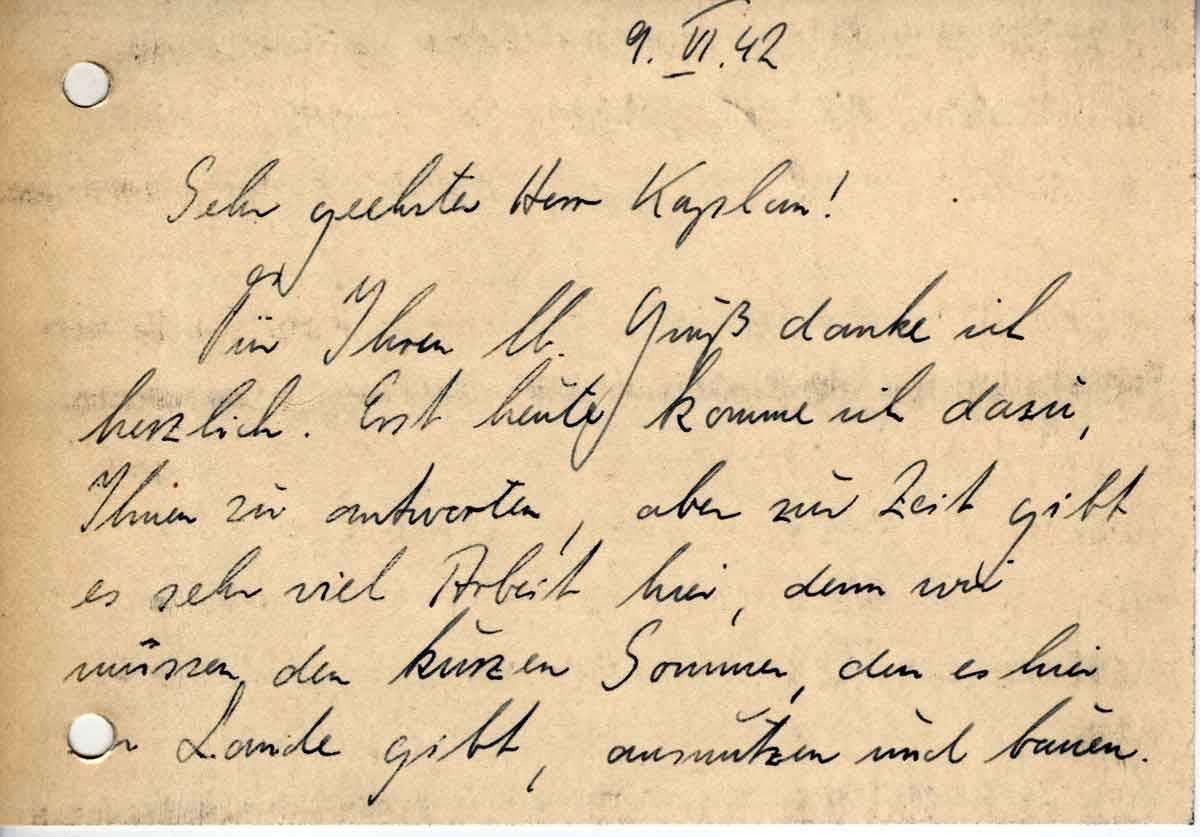 9. VI. 42
Sehr geehrter Herr Kaplan!
Für Ihren lb. Gruß danke ich
herzlich. Erst heute komme ich dazu,
Ihnen zu antworten, aber zur Zeit gibt
es sehr viel Arbeit hier, denn wir
müssen den kurzen Sommer, den es hier
Lande gibt, ausnützen und bauen.